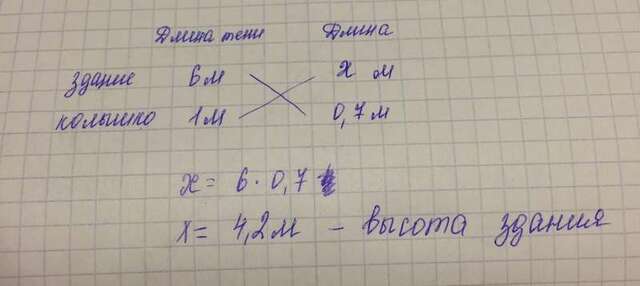 Длина тени Длина
здание 6м x м
колышко 1м 0,7м
x = 6 · 0,7
x = 4,2м – высота здания